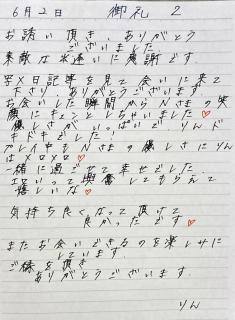 6月2日 御礼 2
お誘い頂き、ありがとう
ございました
素敵な出逢いに感謝です
写メ日記等を見て会いに来て
下さり、ありがとうございます
お会いした瞬間からNさまの笑
顔にキュンとしちゃいました♡
優しさがいっぱいで、りんド
キドキでした
プレイ中もNさまの優しさにりん
はメロメロ♡
一緒に過ごせて幸せでした
エロいって興奮してもらえて
嬉しいな♡
気持ち良くなって頂けて
良かったです♡
またお会いできるのを楽しみに
しています。
ご縁を頂き
ありがとうございます。
りん